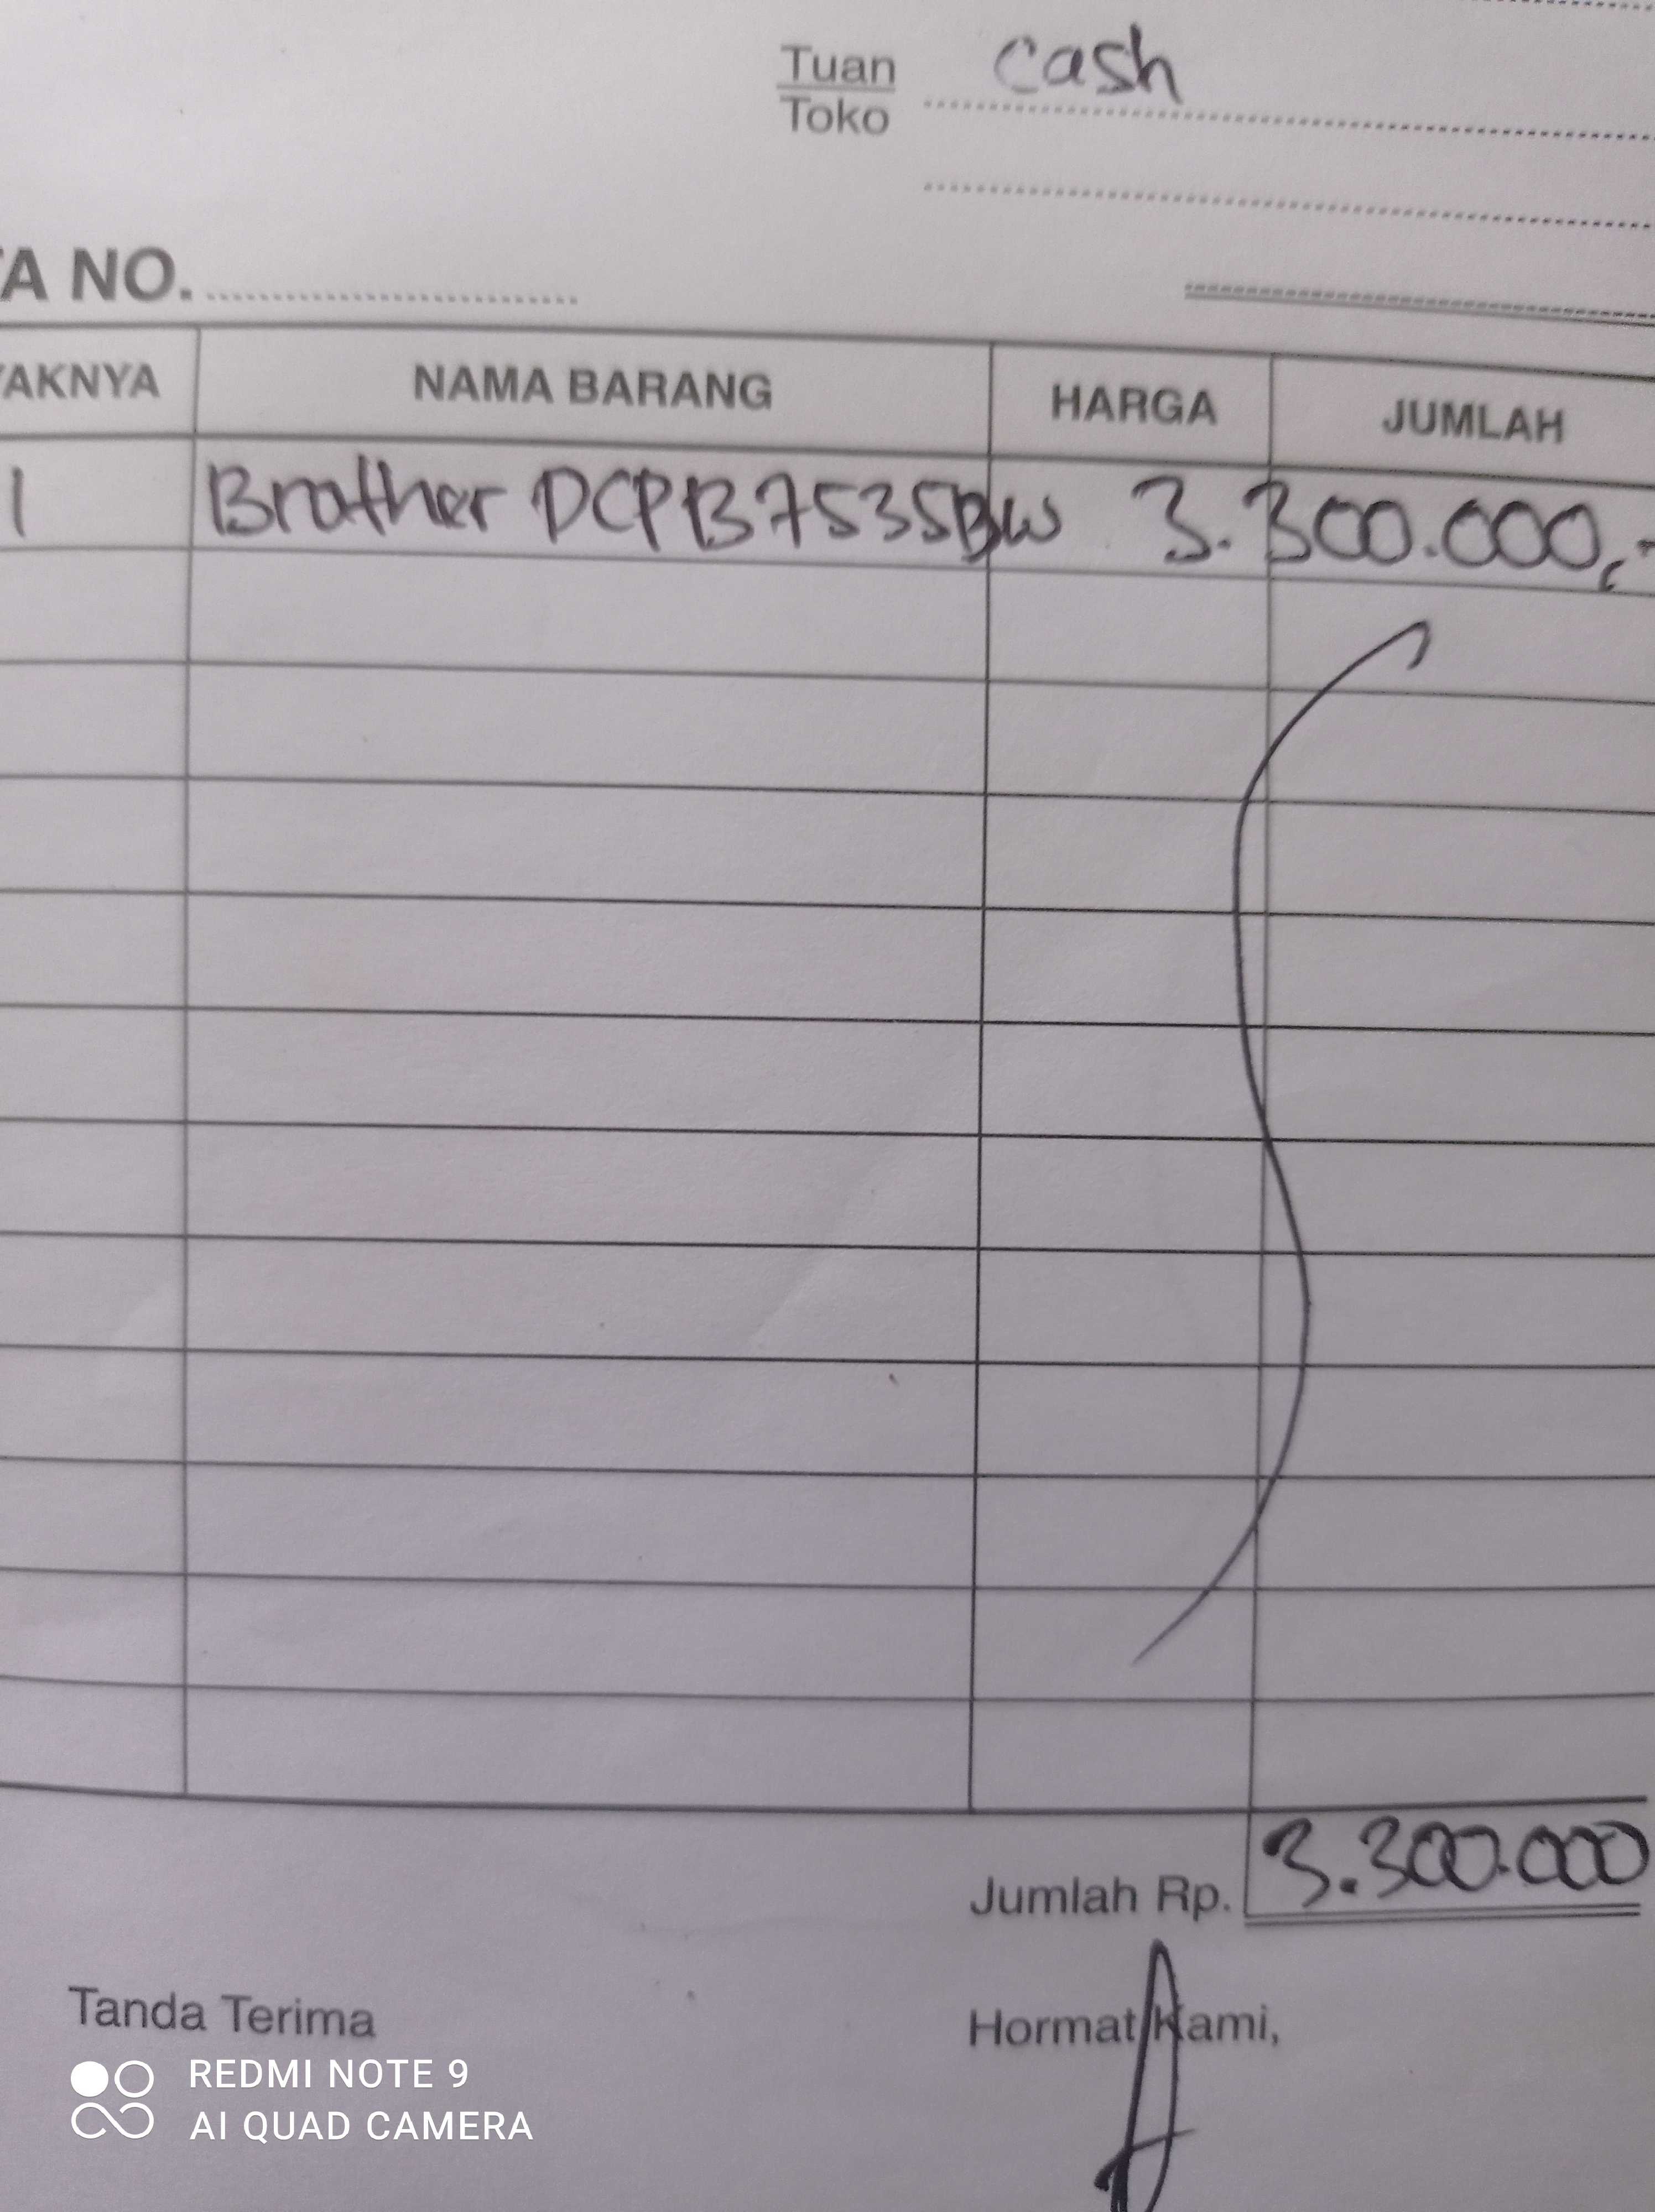 Tuan cash
Toko
TA NO.
YAKNYA NAMA BARANG HARGA JUMLAH
1 Brother DCPB7535BW 3.300.000,-
Jumlah Rp. 3.300.000
Tanda Terima Hormat Kami,
REDMI NOTE 9
AI QUAD CAMERA